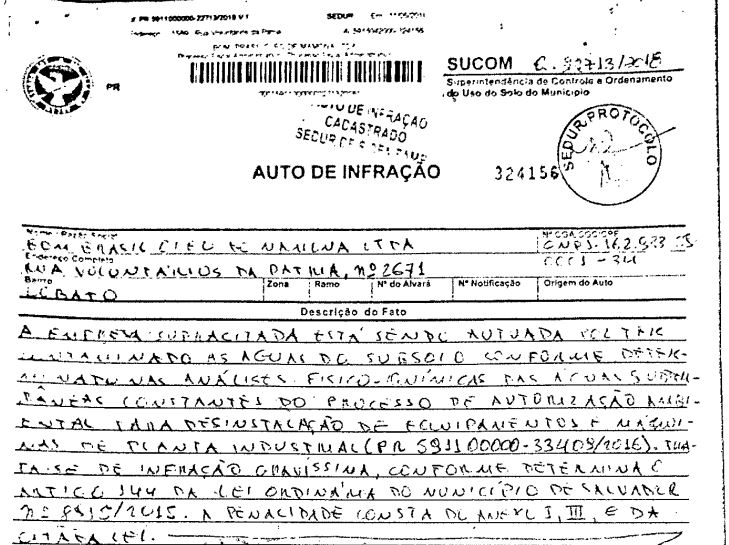 PR 5911000000-22713/2018 V.1 SEDUR Em: 11/05/2018
Endereço: Rua Voluntários da Pátria
PR
SUCOM 22713/2018
Superintendência de Controle e Ordenamento
do Uso do Solo do Município
AUTO DE INFRAÇÃO
CADASTRADO
SEDUR
SEDUR PROTOCOLO
AUTO DE INFRAÇÃO 324156
Nome / Razão Social
BOM BRASIL ÓLEO DE MAMONA LTDA CNPJ-
Endereço Completo
RUA VOLUNTÁRIOS DA PÁTRIA, Nº 2671
Bairro Zona Ramo Nº do Alvará Nº Notificação Origem do Auto
LOBATO
Descrição do Fato
A EMPRESA SUPRACITADA ESTÁ SENDO AUTUADA POR TER
CONTAMINADO AS ÁGUAS DO SUBSOLO CONFORME DETER-
MINADO NAS ANÁLISES FÍSICO-QUÍMICAS DAS ÁGUAS SUBTER-
RÂNEAS CONSTANTES DO PROCESSO DE AUTORIZAÇÃO AMBI-
ENTAL PARA DESINSTALAÇÃO DE EQUIPAMENTOS E MÁQUI-
NAS DE PLANTA INDUSTRIAL (PR 5911 00000-33409/2016). TRA-
TA-SE DE INFRAÇÃO GRAVÍSSIMA, CONFORME DETERMINA O
ARTIGO 144 DA LEI ORDINÁRIA DO MUNICÍPIO DE SALVADOR
Nº 8915/2015. A PENALIDADE CONSTA DO ANEXO I, III, E DA
CITADA LEI.